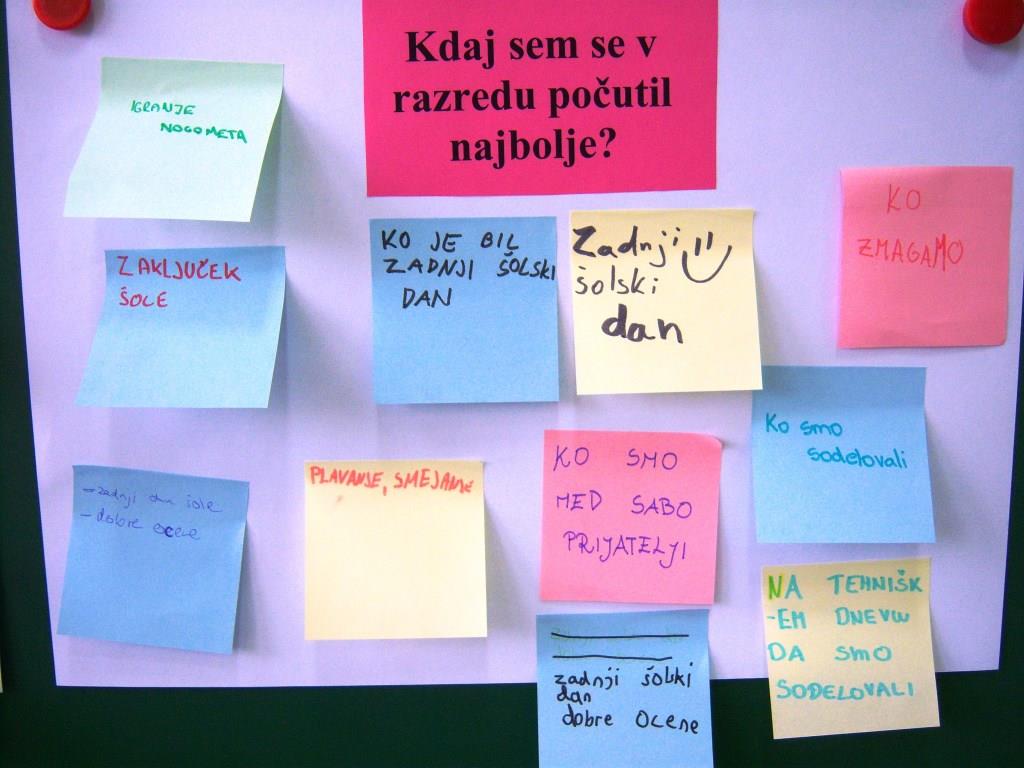 Kdaj sem se v
razredu počutil
najbolje?
IGRANJE
NOGOMETA
ZAKLJUČEK
ŠOLE
KO JE BIL
ZADNJI ŠOLSKI
DAN
Zadnji
šolski
dan
KO
ZMAGAMO
Ko smo
sodelovali
- zadnji dan šole
- dobre ocene
PLAVANJE, SMEJANJE
KO SMO
MED SABO
PRIJATELJI
NA TEHNIŠK
-EM DNEVU
DA SMO
SODELOVALI
zadnji šolski
dan
dobre ocene